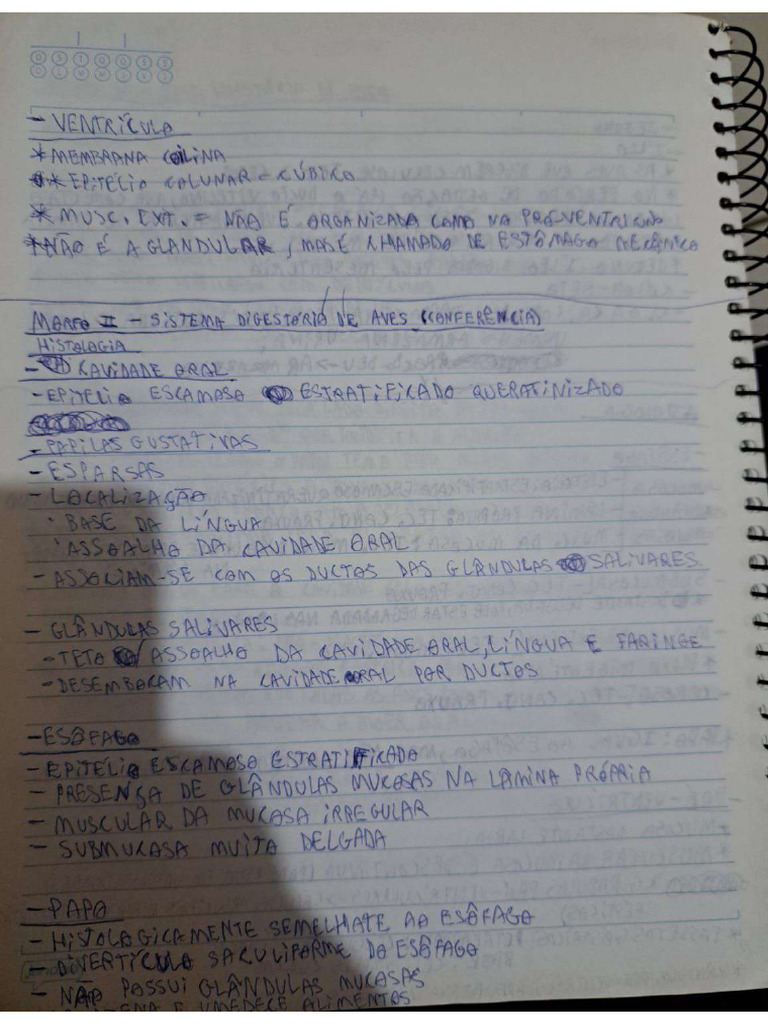 D S T Q Q S S
D L M M J V S
- VENTRÍCULO
* MEMBRANA COILINA
* EPITÉLIO COLUNAR - CÚBICO
* MUSC. EXT. = NÃO É ORGANIZADA COMO NA PROVENTRICULO
* NÃO É A GLANDULAR, MAS É CHAMADO DE ESTÔMAGO MECÂNICO
MORFO II - SISTEMA DIGESTÓRIO DE AVES (CONFERÊNCIA)
HISTOLOGIA
- CAVIDADE ORAL
- EPITÉLIO ESCAMOSO ESTRATIFICADO QUERATINIZADO
- PAPILAS GUSTATIVAS
- ESPARSAS
- LOCALIZAÇÃO
· BASE DA LÍNGUA
· ASSOALHO DA CAVIDADE ORAL
- ASSOCIAM-SE COM OS DUCTOS DAS GLÂNDULAS SALIVARES
- GLÂNDULAS SALIVARES
- TETO / ASSOALHO DA CAVIDADE ORAL, LÍNGUA E FARINGE
- DESEMBOCAM NA CAVIDADE ORAL POR DUCTOS
- ESÔFAGO
- EPITÉLIO ESCAMOSO ESTRATIFICADO
- PRESENÇA DE GLÂNDULAS MUCOSAS NA LÂMINA PRÓPRIA
- MUSCULAR DA MUCOSA IRREGULAR
- SUBMUCOSA MUITA DELGADA
- PAPO
- HISTOLOGICAMENTE SEMELHATE AO ESÔFAGO
- DIVERTÍCULO SACULIFORME DO ESÔFAGO
- NÃO POSSUI GLÂNDULAS MUCOSAS
E UMEDECE ALIMENTOS